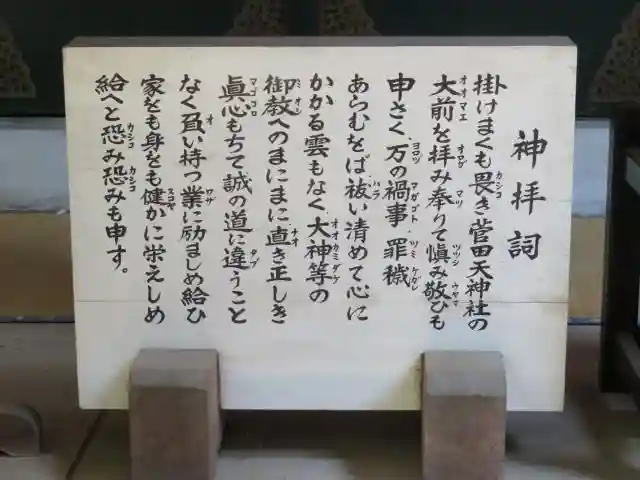 神拝詞
掛けまくも畏き菅田天神社の
大前を拝み奉りて慎み敬ひも
申さく、万の禍事・罪穢
あらむをば祓い清めて心に
かかる雲もなく、大神等の
御教へのまにまに直き正しき
眞心もちて誠の道に違うこと
なく負い持つ業に励ましめ給ひ
家をも身をも健かに栄えしめ
給へと恐み恐みも申す。